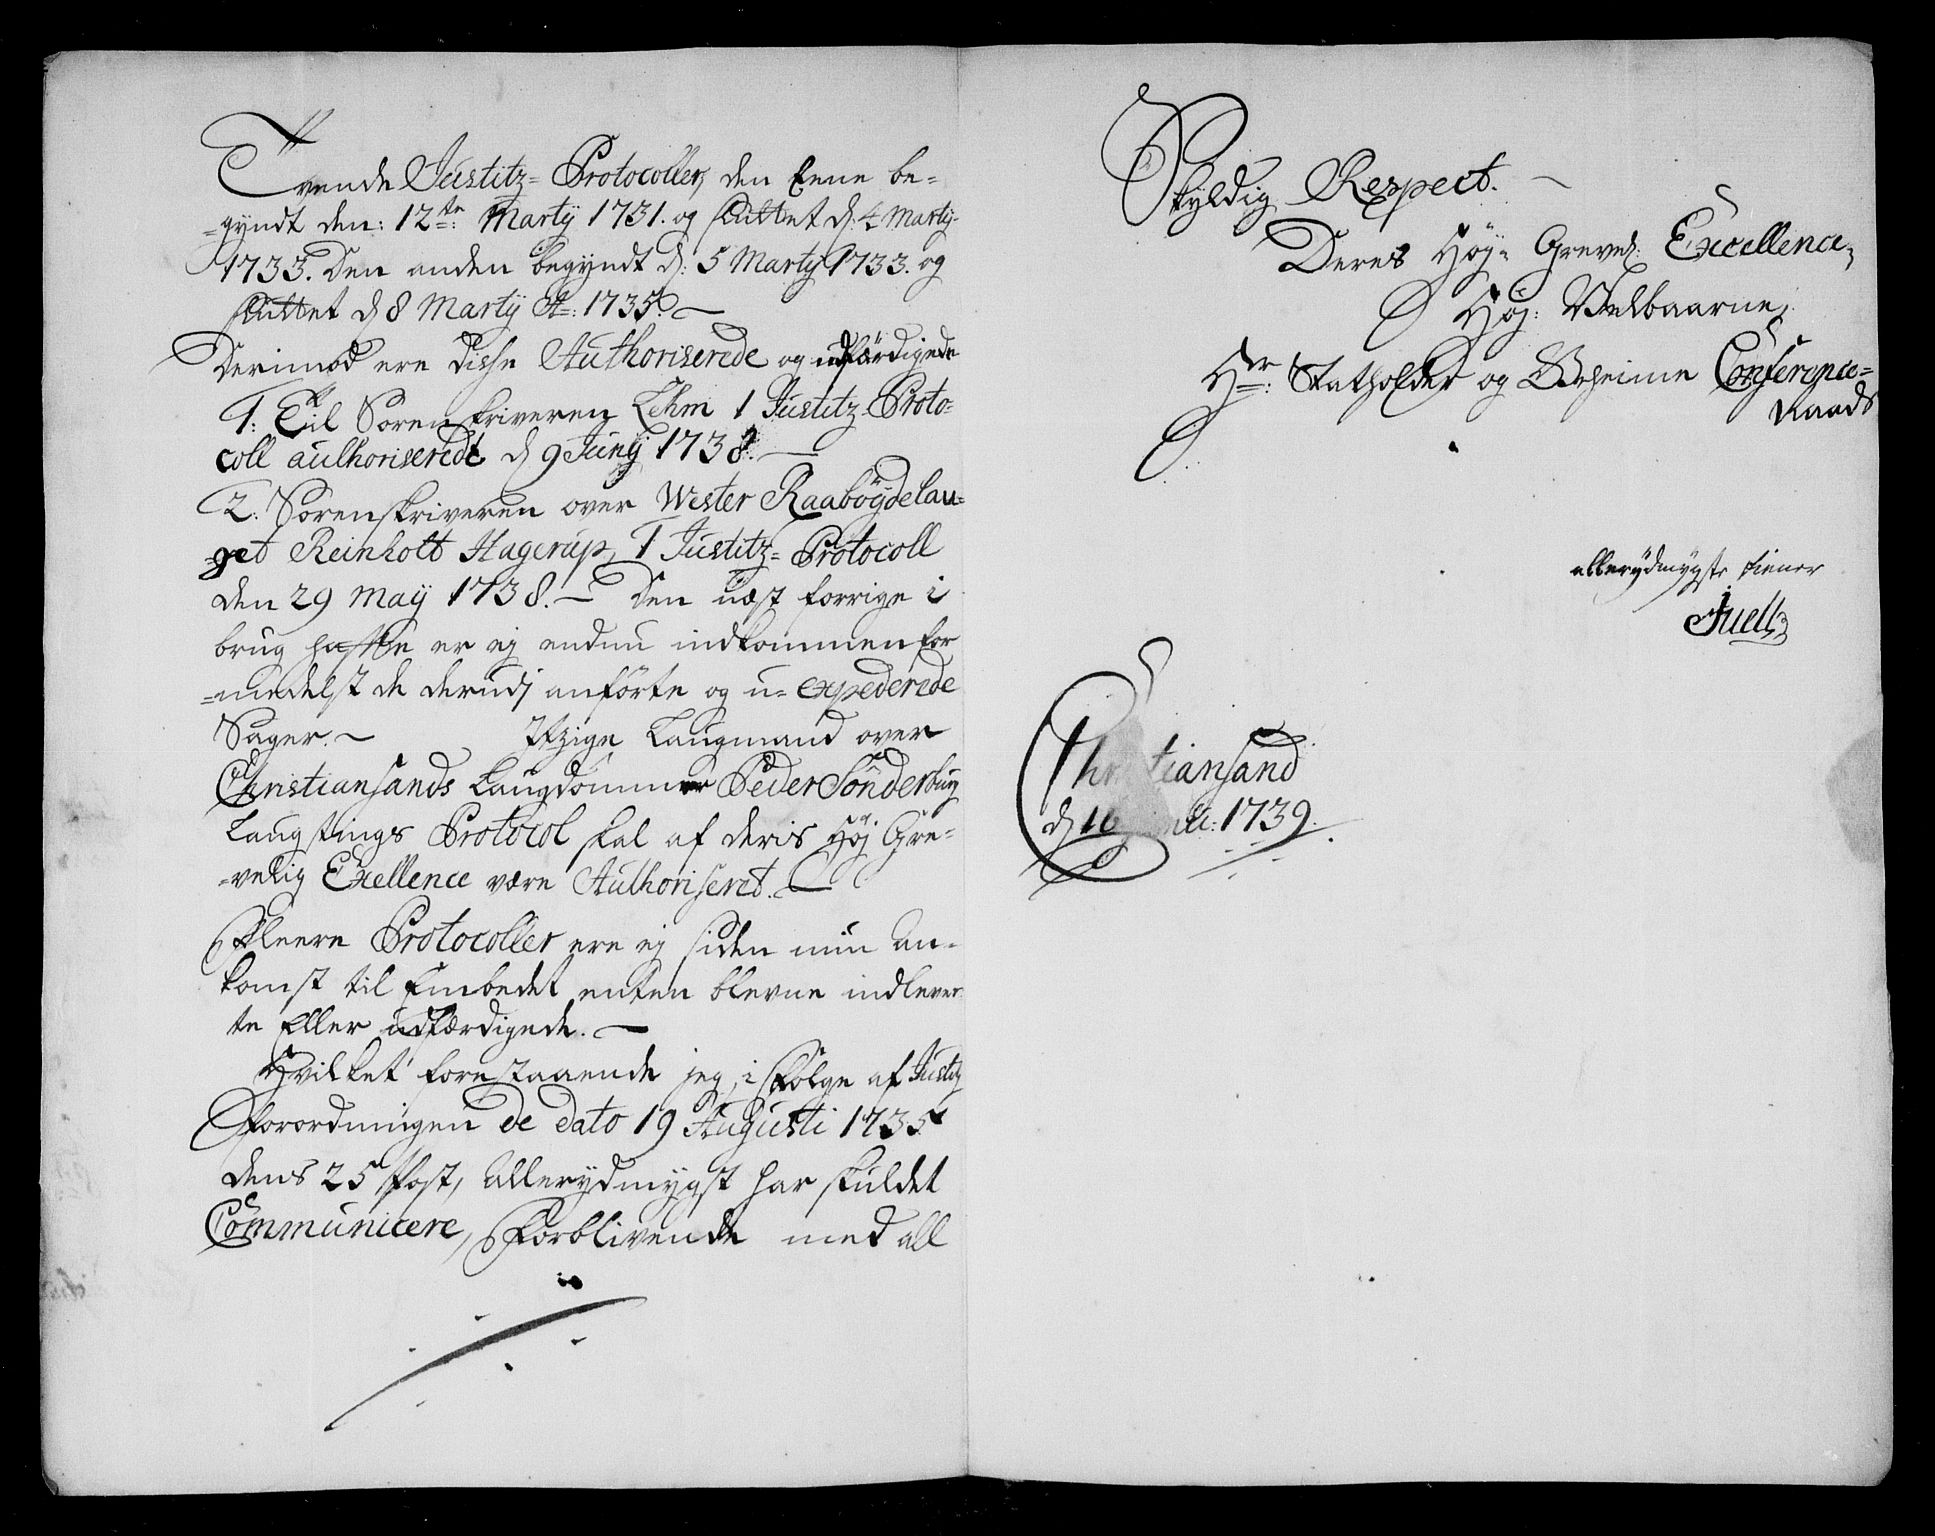 Tvende Justitz-Protocoller, den Eene be-
-gyndt den: 12te: Marty 1731. og sluttet d: 4 Marty
1733. Den anden begyndt d: 5 Marty 1733. og
sluttet d 8 Marty Ao: 1735. —
Derimod ere disse Authoriserede og udfærdigede
1: Til Sorenskriveren Lehm 1 Justitz-Proto-
coll aulhoriseredt d 9 Juny 1738. —
2. Sorenskriveren over Wester Raabøÿdelau-
-get Reinholt Hagerup, 1 Justitz-Protocoll
den 29 maÿ 1738. — Den næst forrige i
brug hafte er ej endnu indkommen for
-medelst de derudj anførte og u-expederede
Sager. — Itzige Laugmand over
Christiansands Laugdømme Peder Sønderburg
Laugtings Protocol skal af deris Høj Gre-
-velig Exellence være Authoriseret. —
Fleere Protocoller ere ej siden min An-
komst til Embedet enten blevne indlever
te Eller udfærdigede. —
Hvilket forestaaende jeg, i Følge af Justitz
Forordningen de dato 19 Augusti 1735
dens 25 Post, Allerydmygst har skuldet
Communicere, Forblivende med all
Skyldig Respect. —
Deres Høj-Greved: Excellence,
Høj: Velbaarne
Hr: Statholder og Geheime Conference-
Raads
allerydmygste tiener
Juell
Christiansand
d 16 1739.